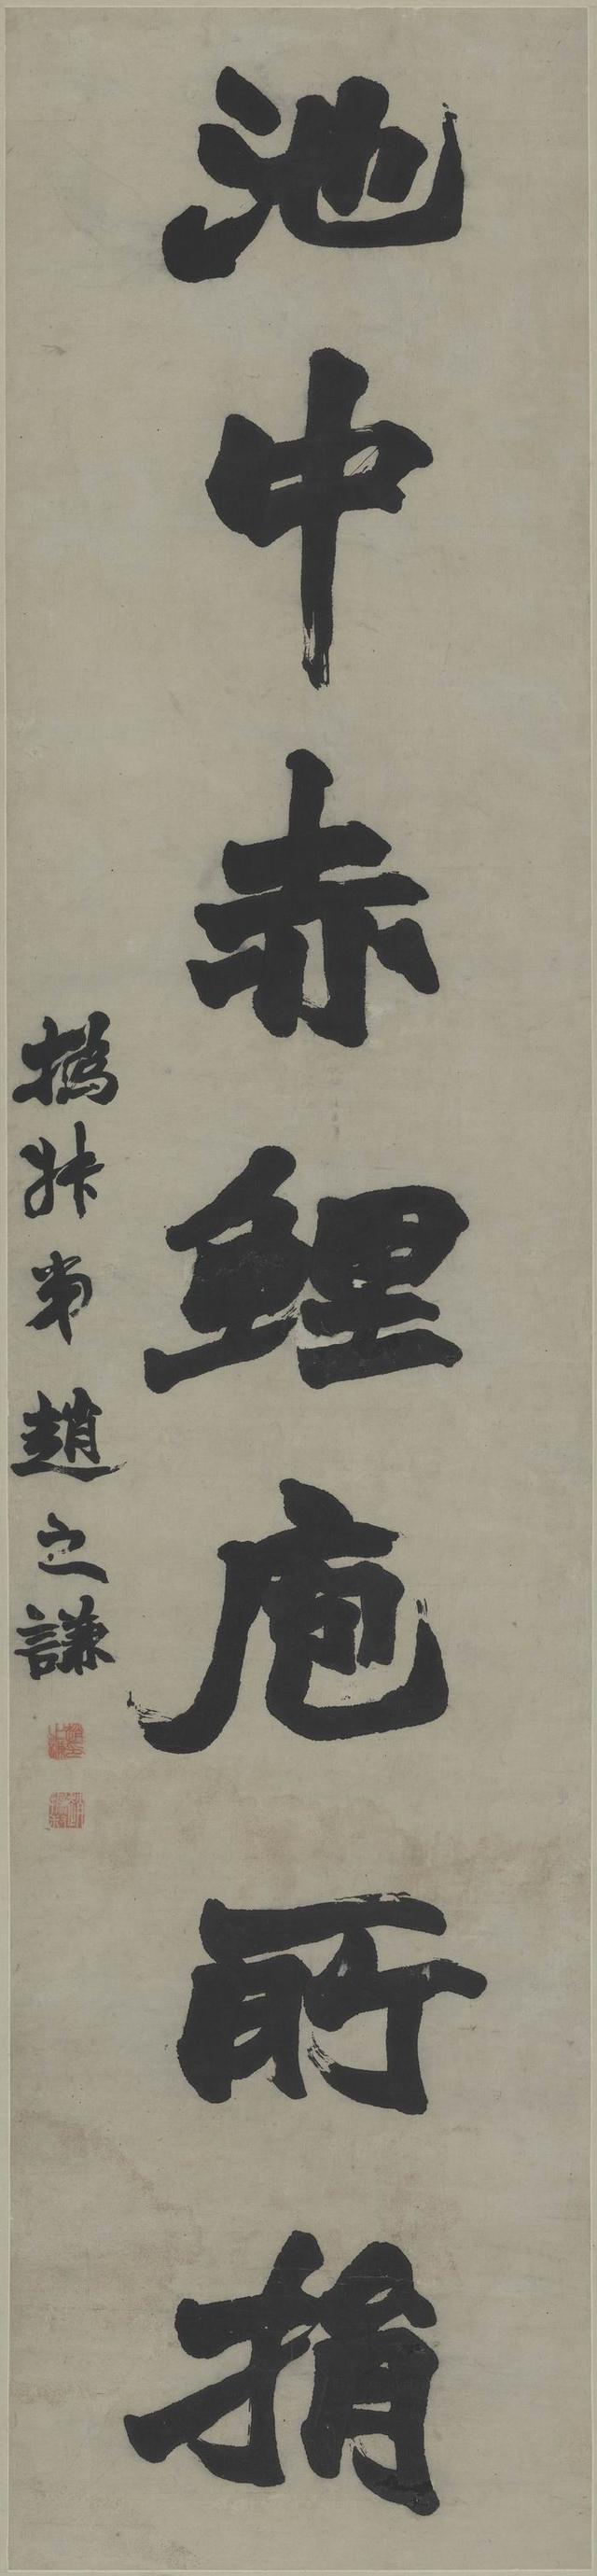 池中赤鯉庖所捐
撝叔弟趙之謙